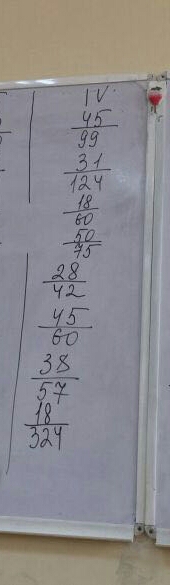 IV
45/99
31/124
18/60
50/75
28/42
45/60
38/57
18/324